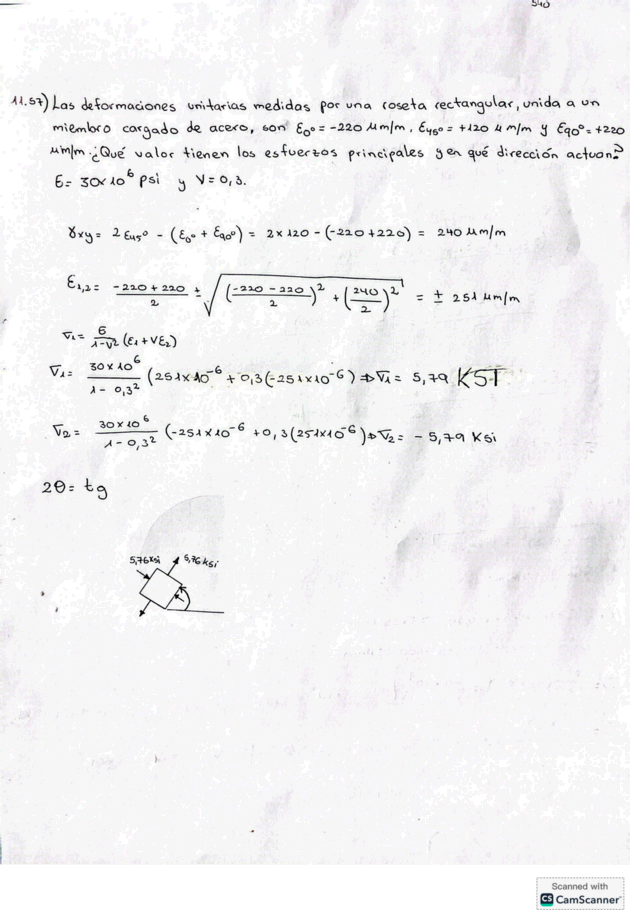 540
11.57) Las deformaciones unitarias medidas por una roseta rectangular, unida a un
miembro cargado de acero, son ε0° = -220 μm/m, ε45° = +120 μ m/m y ε90° = +220
μm/m. ¿Qué valor tienen los esfuerzos principales y en qué dirección actuan?
E = 30x10⁶ psi y V = 0,3.
γxy = 2 ε45° - (ε0° + ε90°) = 2 x 120 - (-220 + 220) = 240 μm/m
ε1,2 = (-220 + 220)/2 ± √(((-220 - 220)/2)² + (240/2)²) = ± 251 μm/m
σ1 = E/(1-V²) (ε1 + Vε2)
σ1 = 30x10⁶/(1-0,3²) (251x10⁻⁶ + 0,3(-251x10⁻⁶) ⇒ σ1 = 5,79 KSI
σ2 = 30x10⁶/(1-0,3²) (-251x10⁻⁶ + 0,3(251x10⁻⁶) ⇒ σ2 = -5,79 Ksi
2θ = tg
5,76 Ksi 5,76 ksi
Scanned with
CS CamScanner